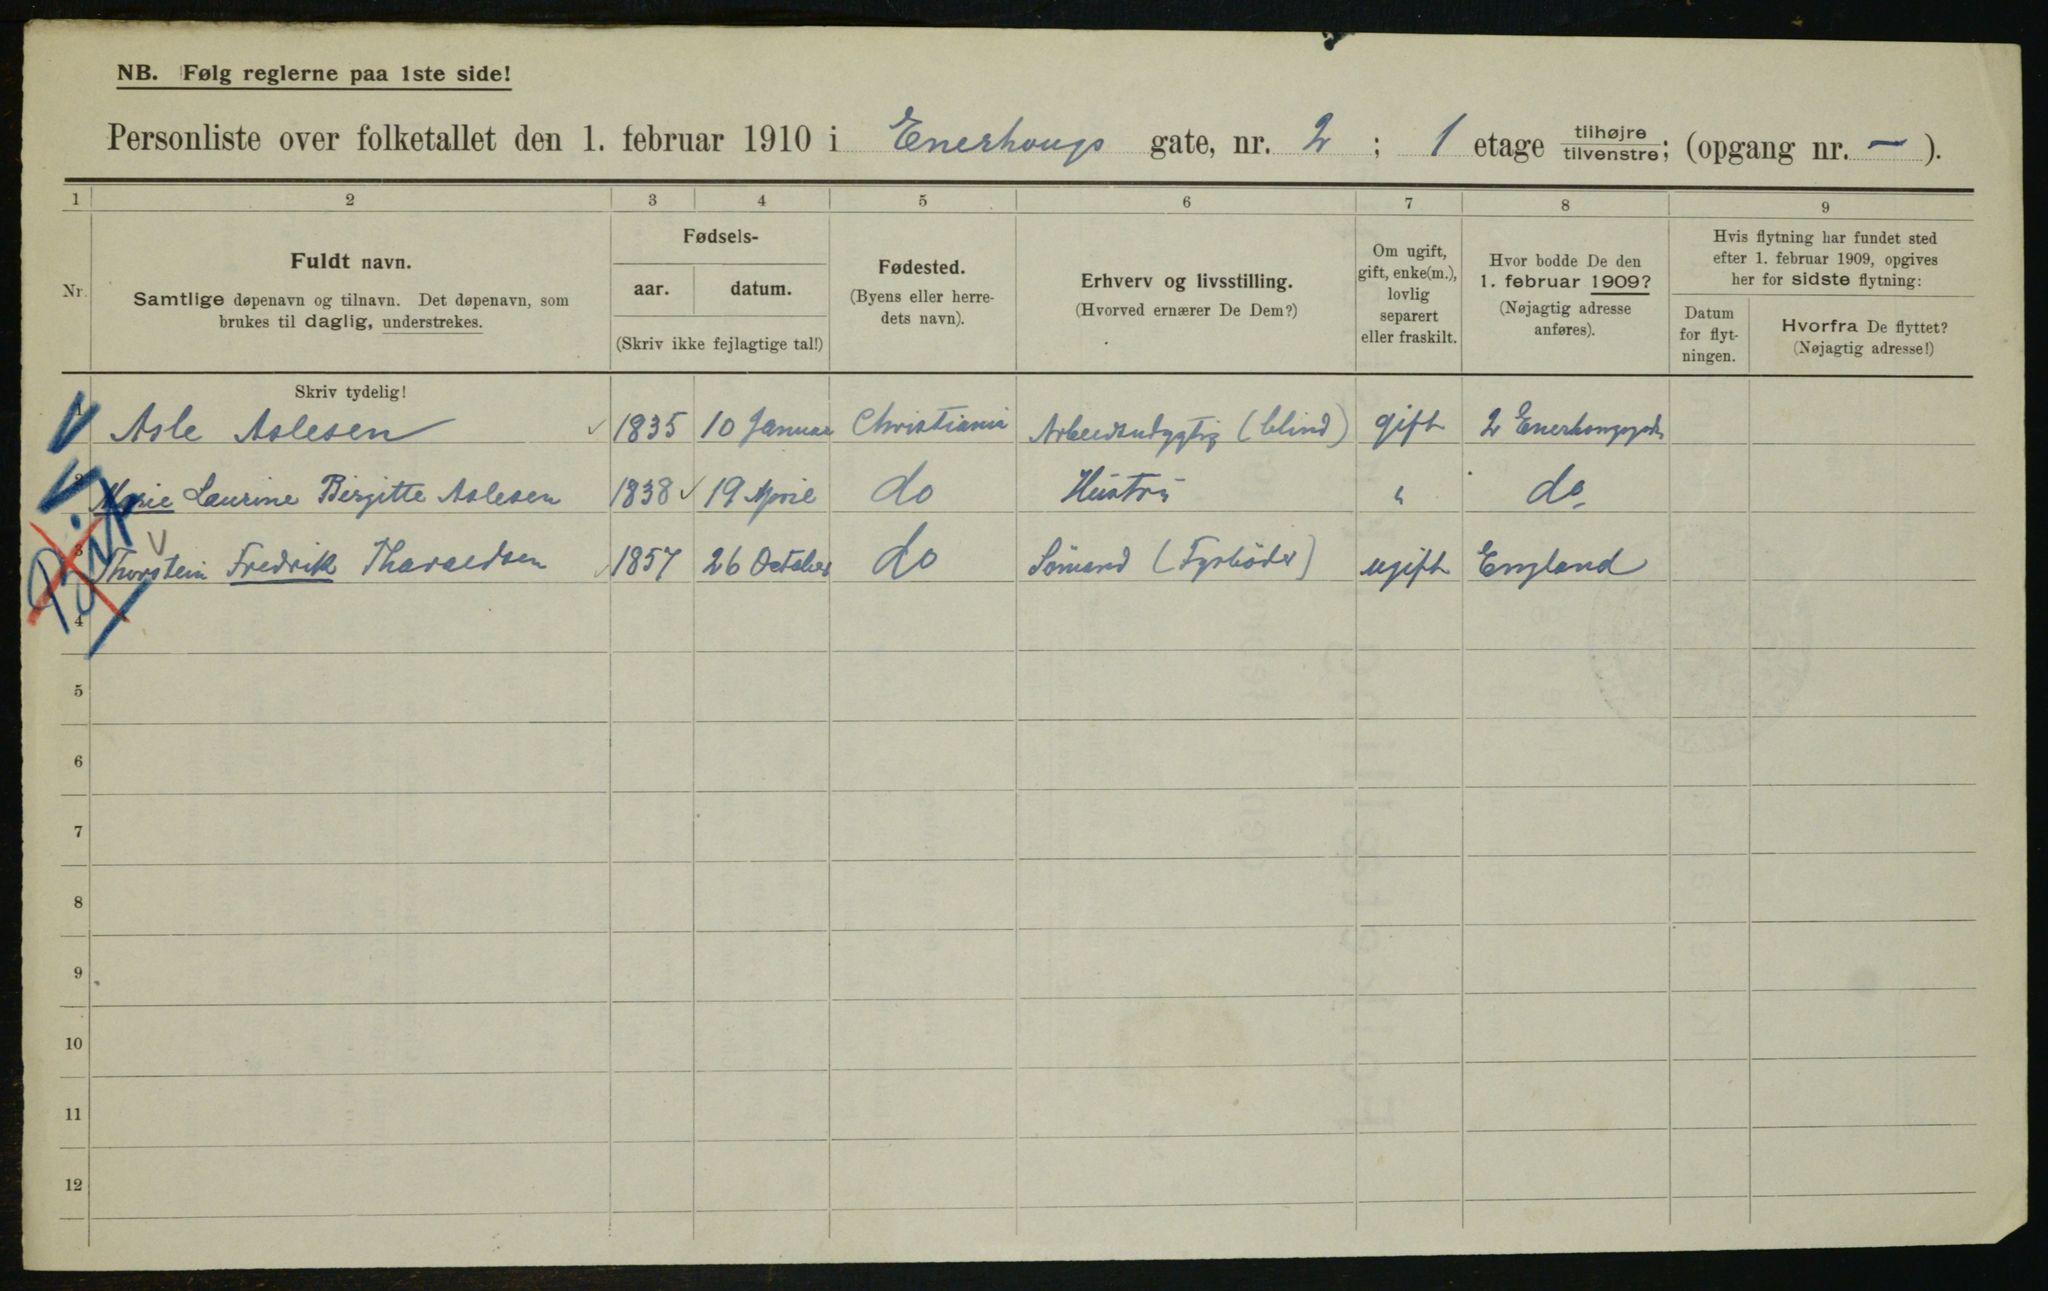 NB. Følg reglerne paa 1ste side!
Personliste over folketallet den 1. februar 1910 i Enerhougs gate, nr. 2 ; 1 etage tilhøjre/tilvenstre; (opgang nr. — ).
1 2 3 4 5 6 7 8 9
Nr.
Fuldt navn.
Samtlige døpenavn og tilnavn. Det døpenavn, som
brukes til daglig, understrekes.
Fødsels-
aar. datum.
(Skriv ikke fejlagtige tal!)
Fødested.
(Byens eller herre-
dets navn).
Erhverv og livsstilling.
(Hvorved ernærer De Dem?)
Om ugift,
gift, enke(m.),
lovlig
separert
eller fraskilt.
Hvor bodde De den
1. februar 1909?
(Nøjagtig adresse
anføres).
Hvis flytning har fundet sted
efter 1. februar 1909, opgives
her for sidste flytning:
Datum
for flyt-
ningen.
Hvorfra De flyttet?
(Nøjagtig adresse!)
Skriv tydelig!
1 Asle Aslesen 1835 10 Januar Christiania Arbeidsudygtig (blind) gift 2 Enerhougsgade
2 Marie Laurine Birgitte Aslesen 1838 19 April do Hustru " do
3 Thorstein Fredrik Tharaldsen 1857 26 October do Sømand (Fyrbøder) ugift England
4
5
6
7
8
9
10
11
12